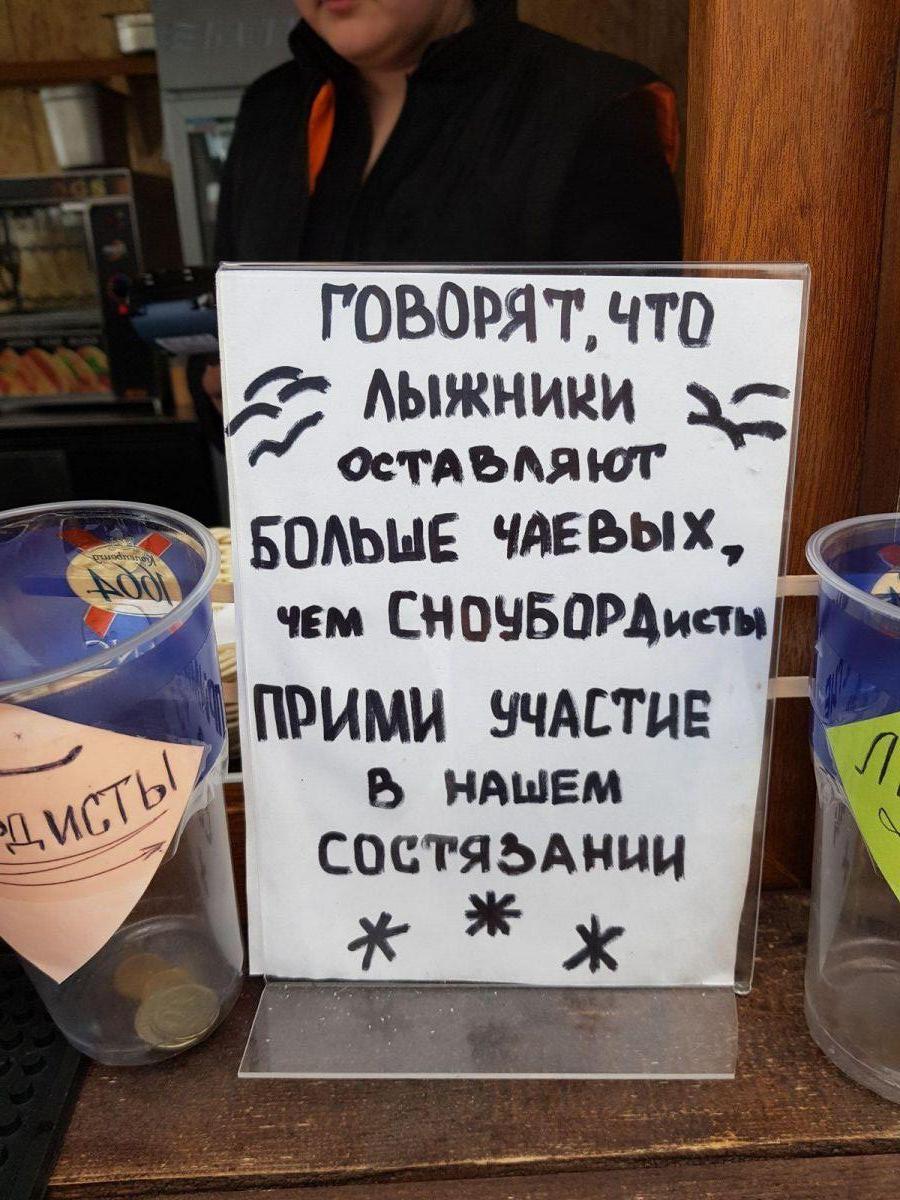 ГОВОРЯТ, ЧТО
ЛЫЖНИКИ
ОСТАВЛЯЮТ
БОЛЬШЕ ЧАЕВЫХ,
ЧЕМ СНОУБОРДИСТЫ
ПРИМИ УЧАСТИЕ
В НАШЕМ
СОСТЯЗАНИИ
ДИСТЫ
1664